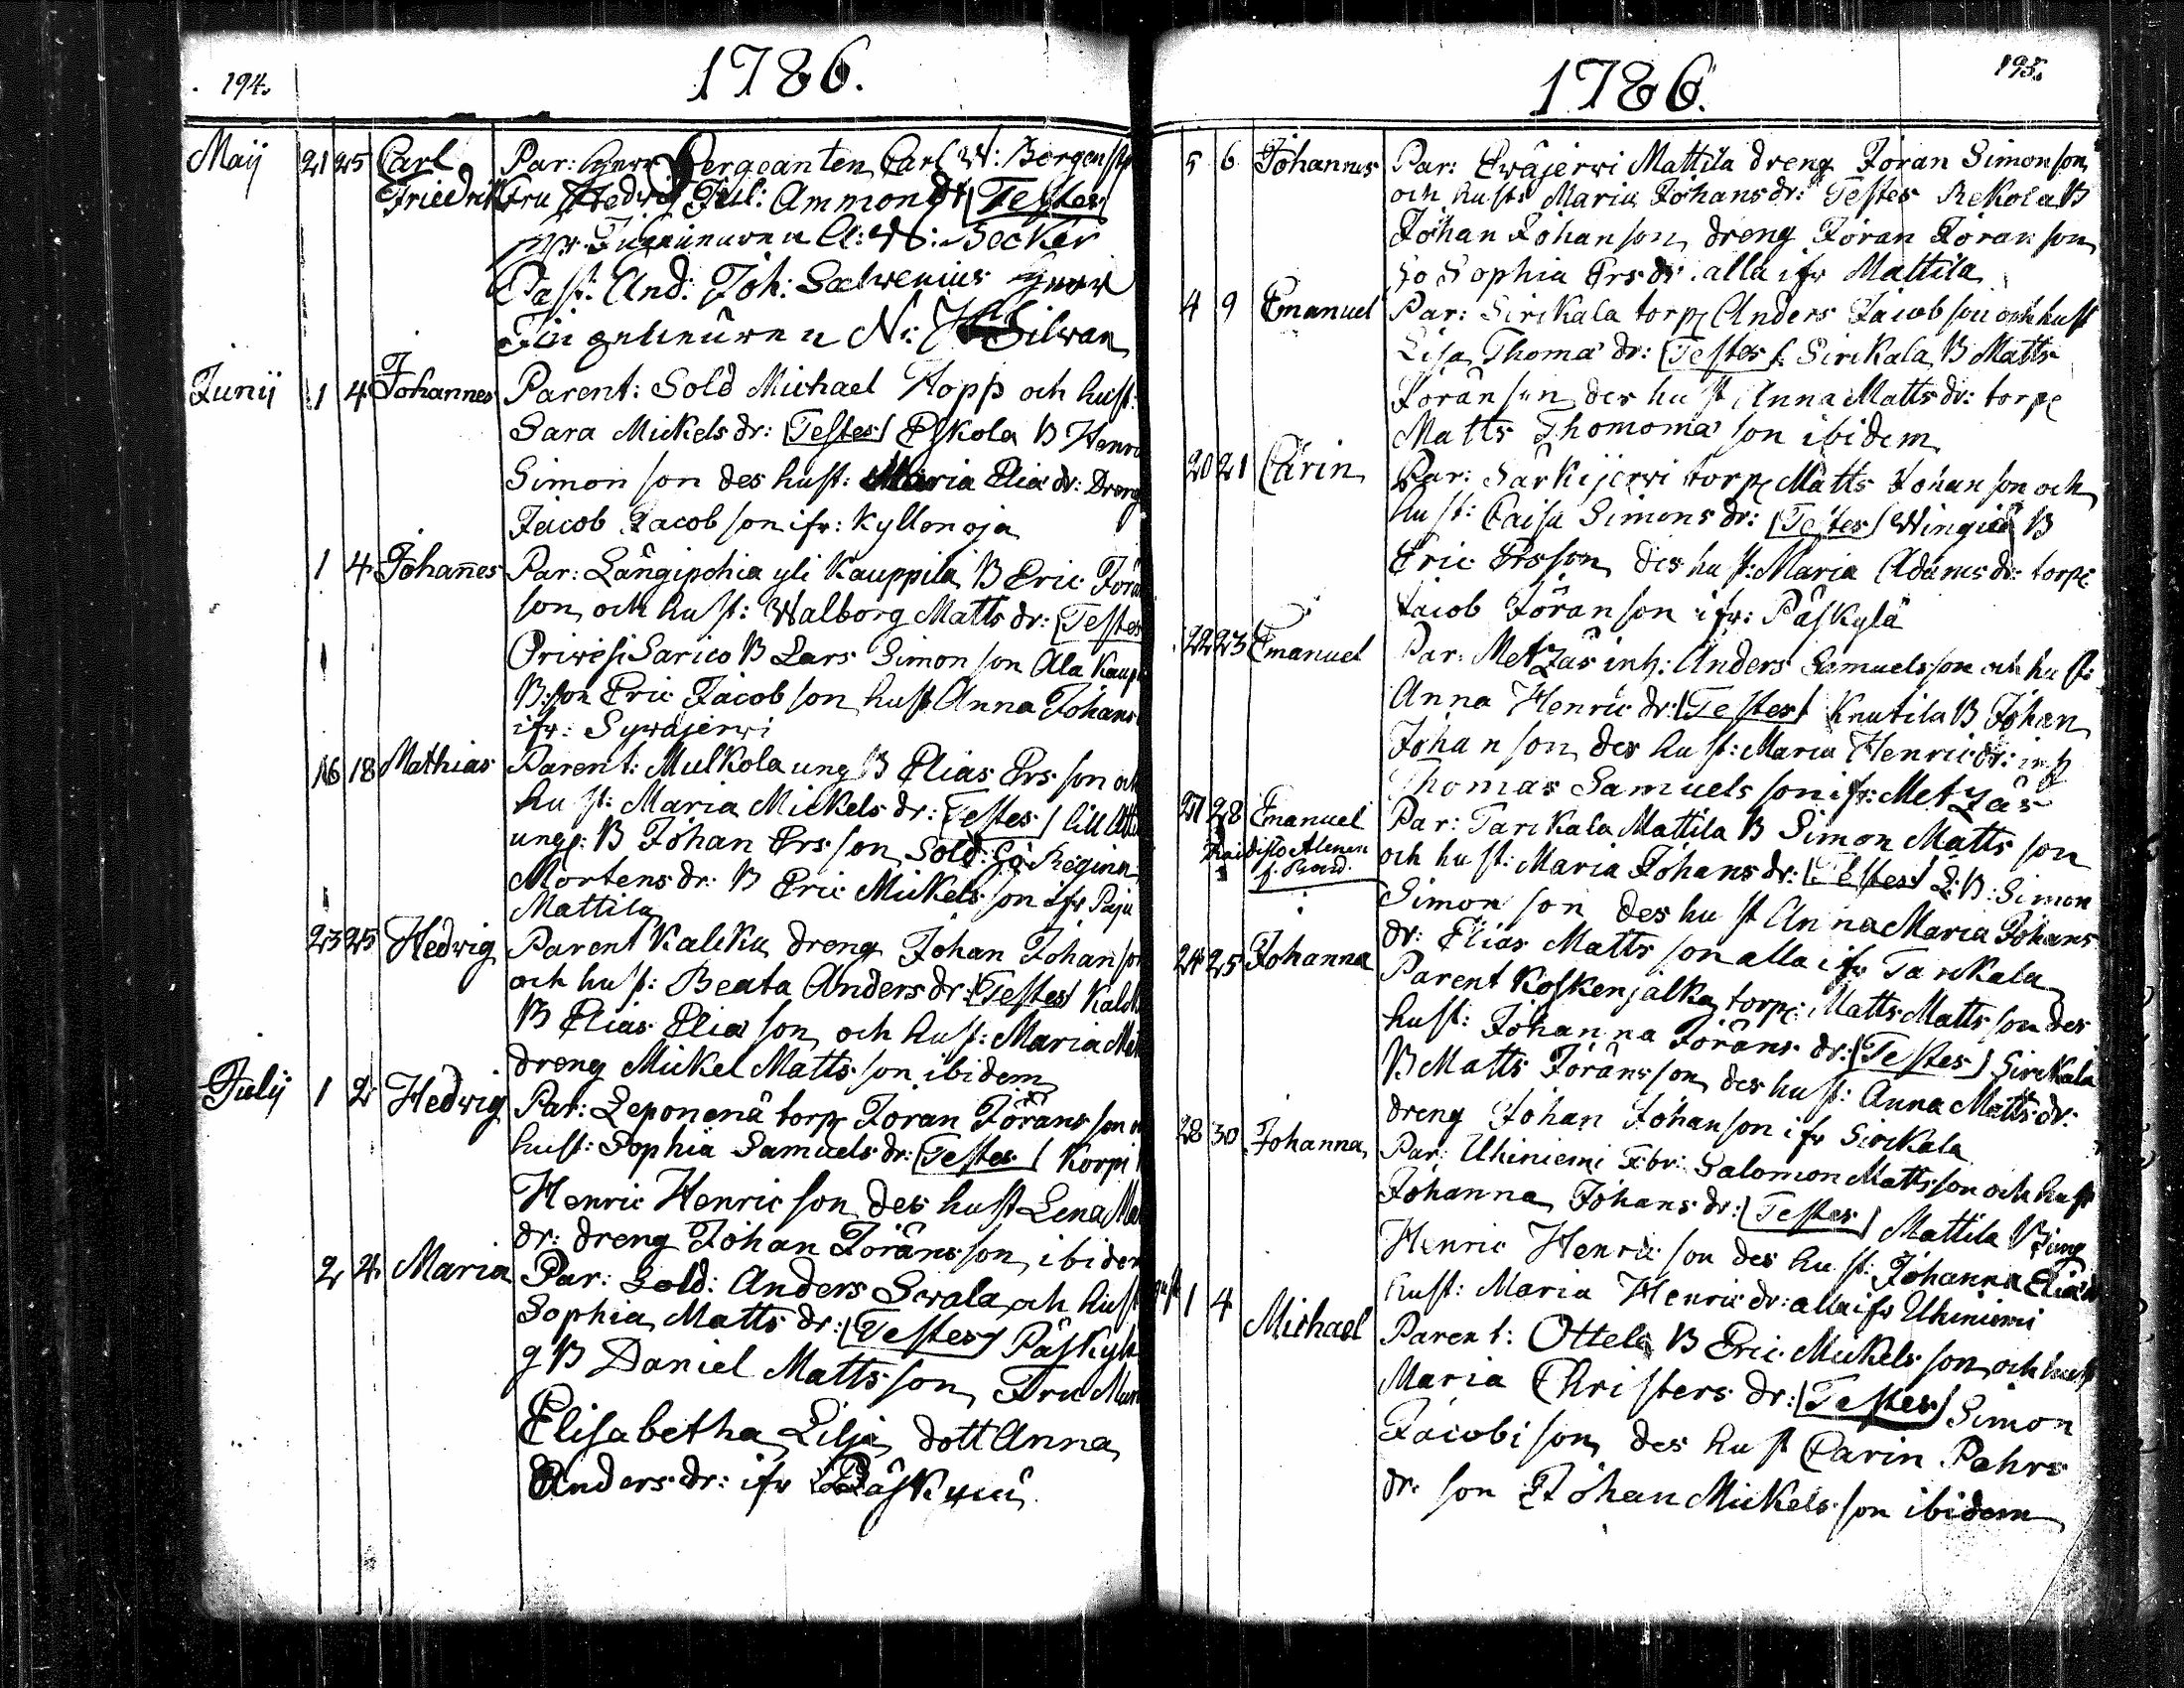 194.
1786.
Maij 21 25 Carl Par: Herr Sergeanten Carl W: Bergenst
Friedrik Fru Hedvig Jul: Ammondt Testes
Hr C: W: Becker
Past: And: Joh: Salvenius Herr
N: Silwan
Junij 1 4 Johannes Parent: Sold Michael Hopp och hust:
Sara Mickels dr: Testes Eskola B Henric
Simon son des hust: Maria Elia dr: Dreng
Jacob Jacob son ifr: Kyllonoja
1 4 Johanes Par: Långipohia yli Kauppila B Eric Jöran
son och hust: Walborg Matts dr: Testes
Oriwesi Sarico B Lars Simon son Ala Kaup
B: son Eric Jacob son hust Anna Johans
ifr: Sywäjerwi
16 18 Mathias Parent: Mulkola ung B Elias Ers son och
hust: Maria Mickels dr: Testes lill
ung: B Johan Ers son Sold: Regina
Mortens dr: B Eric Mickels son ifr Paju
Mattila
23 25 Hedwig Parent Kalcku dreng Johan Johan son
och hust: Beata Anders dr: Testes Kalck
B Elias Elia son och hust: Maria
dreng Mickel Matts son ibidem
Julij 1 2 Hedwig Par: Leponenä torp Joran Jörans son
hust: Sophia Samuels dr: Testes Korpi
Henric Henric son des hust Lena
dr: dreng Johan Jörans son ibidem
2 4 Maria Par: Sold: Anders Swala och hust
Sophia Matts dr: Testes Päskyl
g B Daniel Matts son Fru
Elisabetha Lilja dott Anna
Anders dr: ifr
195.
1786.
5 6 Johannes Par: Ewäjerwi Mattila dreng Joran Simon son
och hust: Maria Johans dr: Testes Rekola B
Johan Johan son dreng Joran Joran son
Sophia Ers dr: alla ifr Mattila
4 9 Emanuel Par: Sirckala torp Anders Jacob son och hust
Lisa Thoma dr: Testes Sirckala B Matts
Joran son des hust Anna Matts dr: torp
Matts Thomoma son ibidem
20 21 Carin Par: Särkijerwi torp Matts Johan son och
hust: Caisa Simons dr: Testes B
Eric Ersson des hust: Maria Adams dr: torp
Jacob Jöran son ifr: Päskylä
22 23 Emanuel Par: Metzäs inh: Anders Samuels son och hust:
Anna Henric dr: Testes Knutila B Johan
Johan son des hust: Maria Henric dr: inh
Thomas Samuels son ifr: Metzäs
28 Emanuel Par: Tarckala Mattila B Simon Matts son
och hust: Maria Johans dr: Testes L: B: Simon
Simon son des hust Anna Maria Johans
dr: Elias Matts son alla ifr Tarckala
24 25 Johanna Parent Koskenjalka torp: Matts Matts son des
hust: Johanna Jörans dr: Testes Sirckala
B Matts Jörans son des hust: Anna Matts dr:
dreng Johan Johan son ifr Sirckala
28 30 Johanna Par: Uhiniemi Salomon Matts son och hust
Johanna Johans dr: Testes Mattila B ung
Henric Henric son des hust: Johanna Elia
hust: Maria Henric dr: alla ifr Uhiniemi
1 4 Michael Parent: Ottela B Eric Mickels son och hust
Maria Christers dr: Testes Simon
Jacobi son des hust Carin Pehrs
dr: son Johan Mickels son ibidem